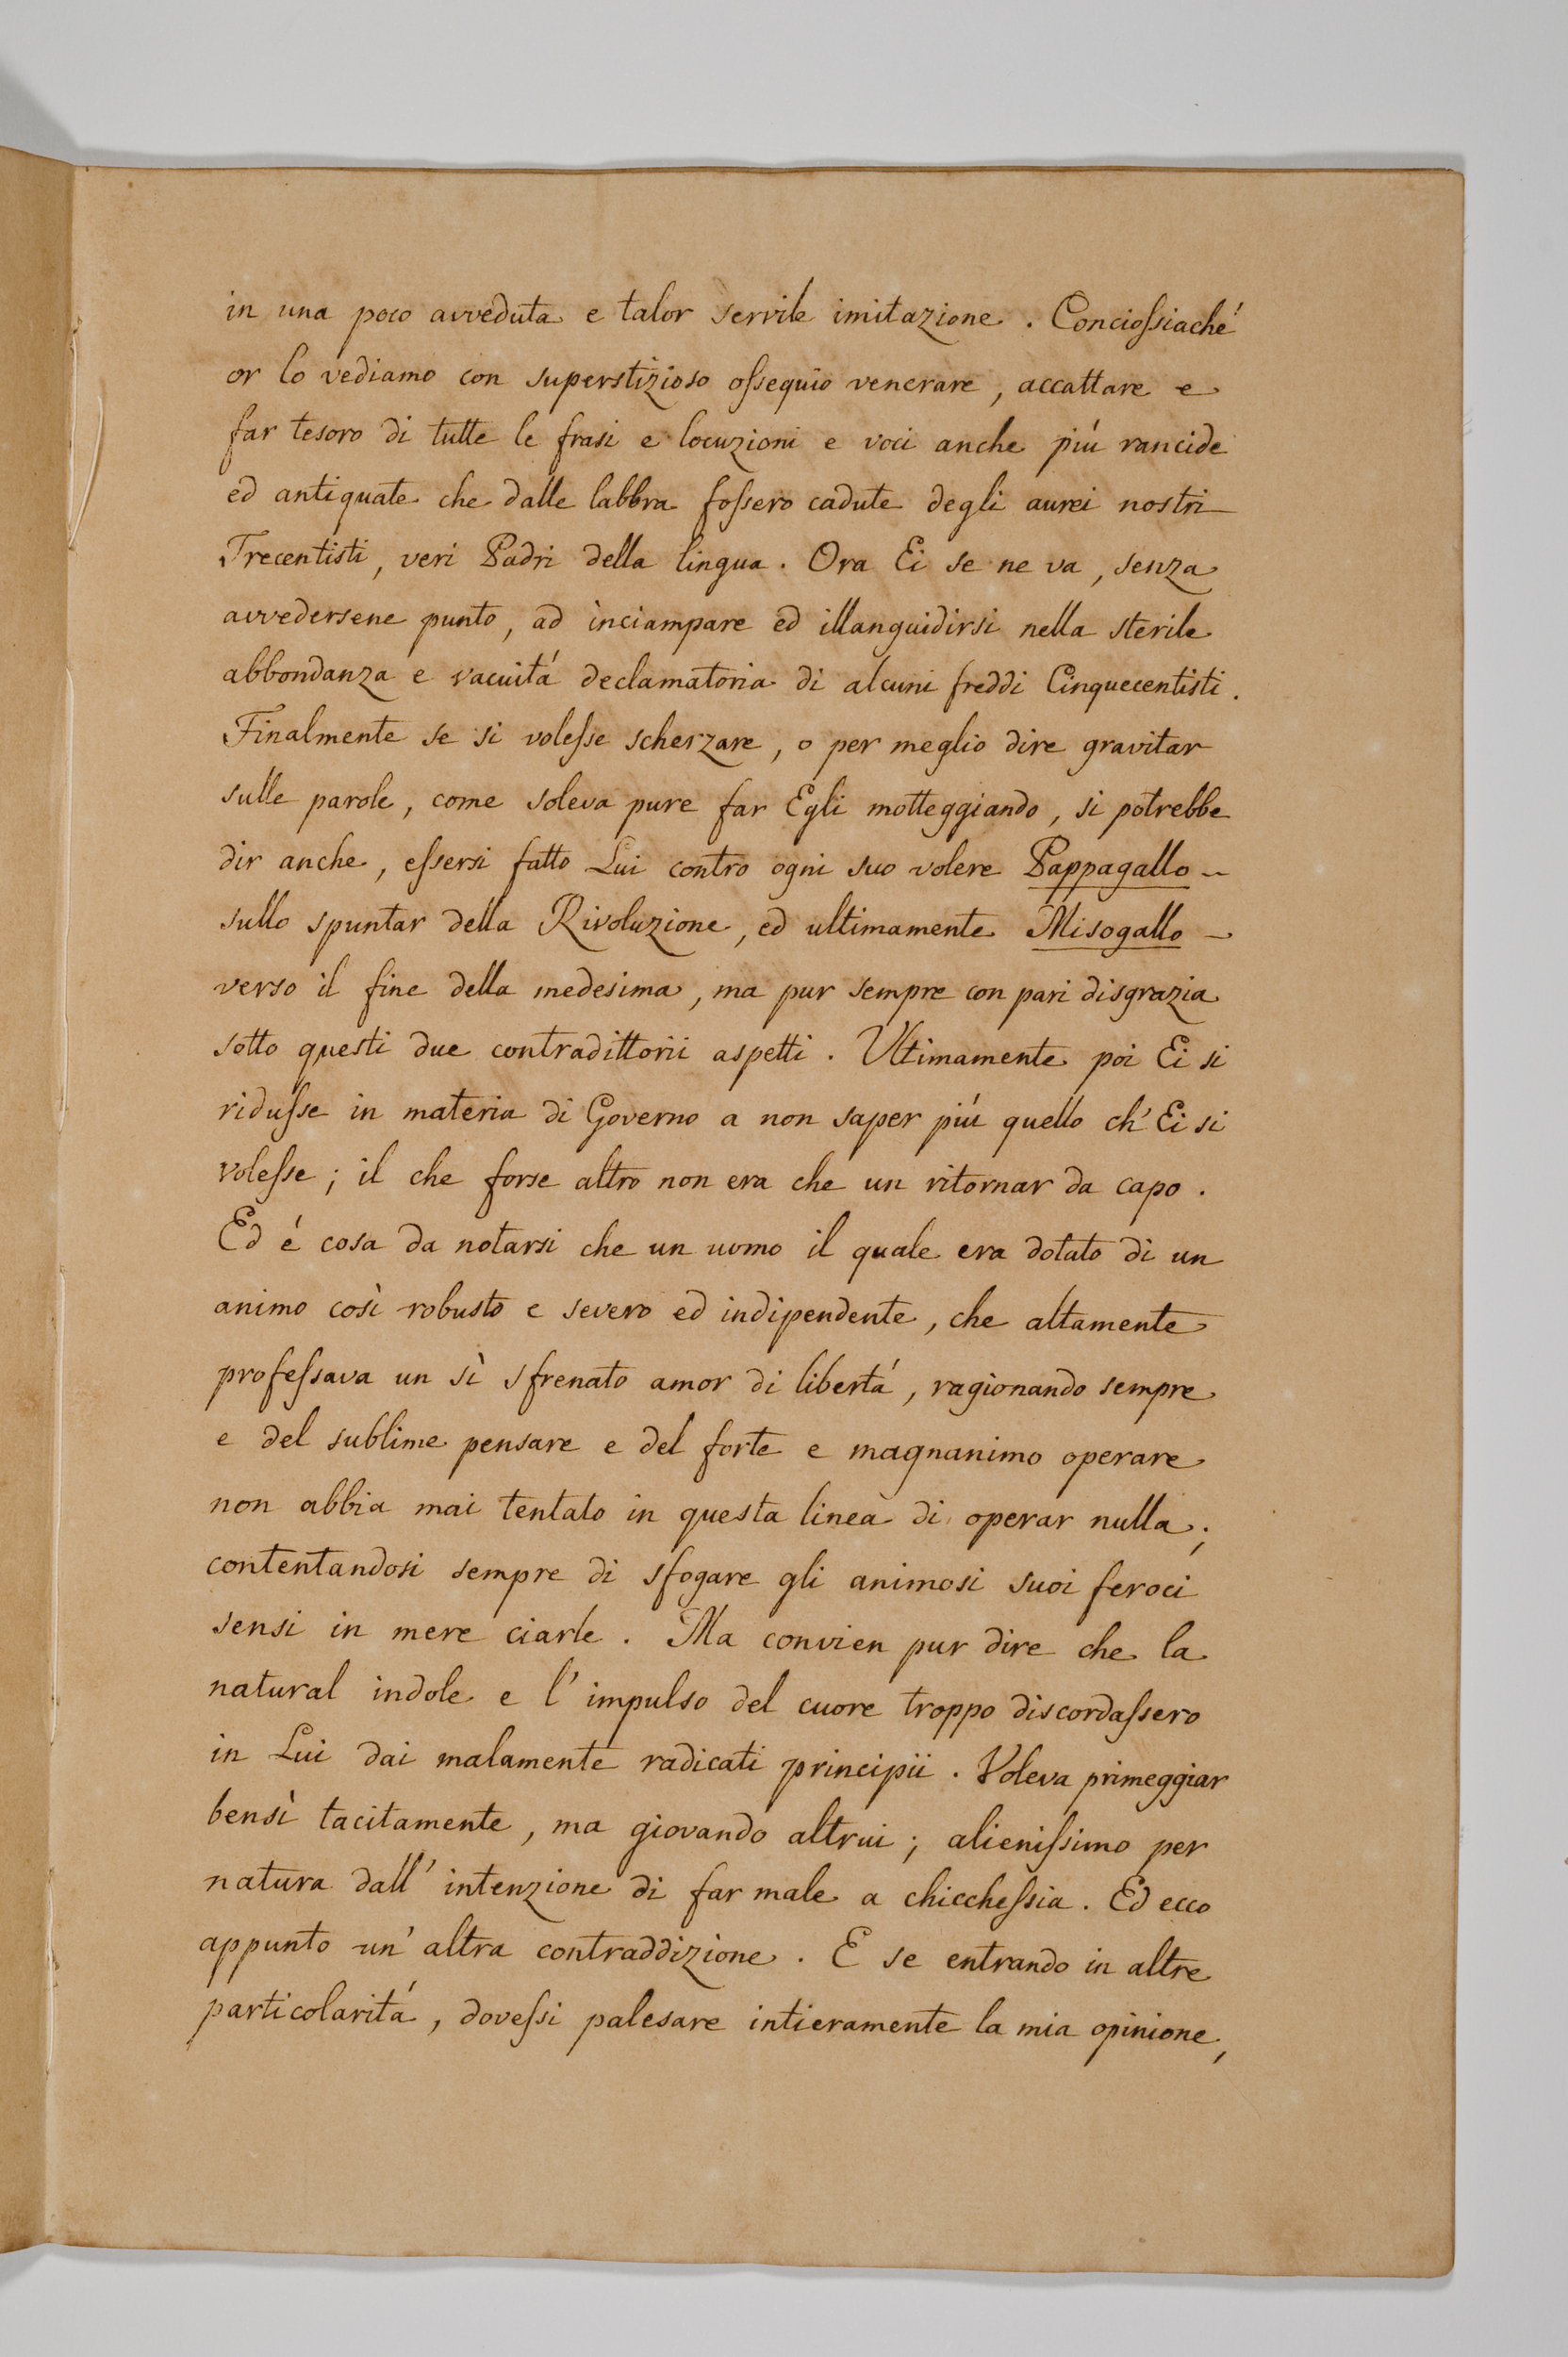 in una poco avveduta e talor servile imitazione. Conciossiaché
or lo vediamo con superstizioso ossequio venerare, accattare e
far tesoro di tutte le frasi e locuzioni e voci anche piú rancide
ed antiquate che dalle labbra fossero cadute degli aurei nostri
Trecentisti, veri Padri della lingua. Ora Ei se ne va, senza
avvedersene punto, ad inciampare ed illanguidirsi nella sterile
abbondanza e vacuitá declamatoria di alcuni freddi Cinquecentisti.
Finalmente se si volesse scherzare, o per meglio dire gravitar
sulle parole, come soleva pure far Egli motteggiando, si potrebbe
dir anche, essersi fatto Lui contro ogni suo volere Pappagallo -
sullo spuntar della Rivoluzione, ed ultimamente Misogallo -
verso il fine della medesima, ma pur sempre con pari disgrazia
sotto questi due contradittorii aspetti. Ultimamente poi Ei si
ridusse in materia di Governo a non saper piú quello ch'Ei si
volesse; il che forse altro non era che un ritornar da capo.
Ed é cosa da notarsi che un uomo il quale era dotato di un
animo così robusto e severo ed indipendente, che altamente
professava un sì sfrenato amor di libertá, ragionando sempre
e del sublime pensare e del forte e magnanimo operare
non abbia mai tentato in questa linea di operar nulla;
contentandosi sempre di sfogare gli animosi suoi feroci
sensi in mere ciarle. Ma convien pur dire che la
natural indole e l'impulso del cuore troppo discordassero
in Lui dai malamente radicati principii. Voleva primeggiar
bensì tacitamente, ma giovando altrui; alienissimo per
natura dall'intenzione di far male a chicchessia. Ed ecco
appunto un'altra contraddizione. E se entrando in altre
particolaritá, dovessi palesare intieramente la mia opinione,